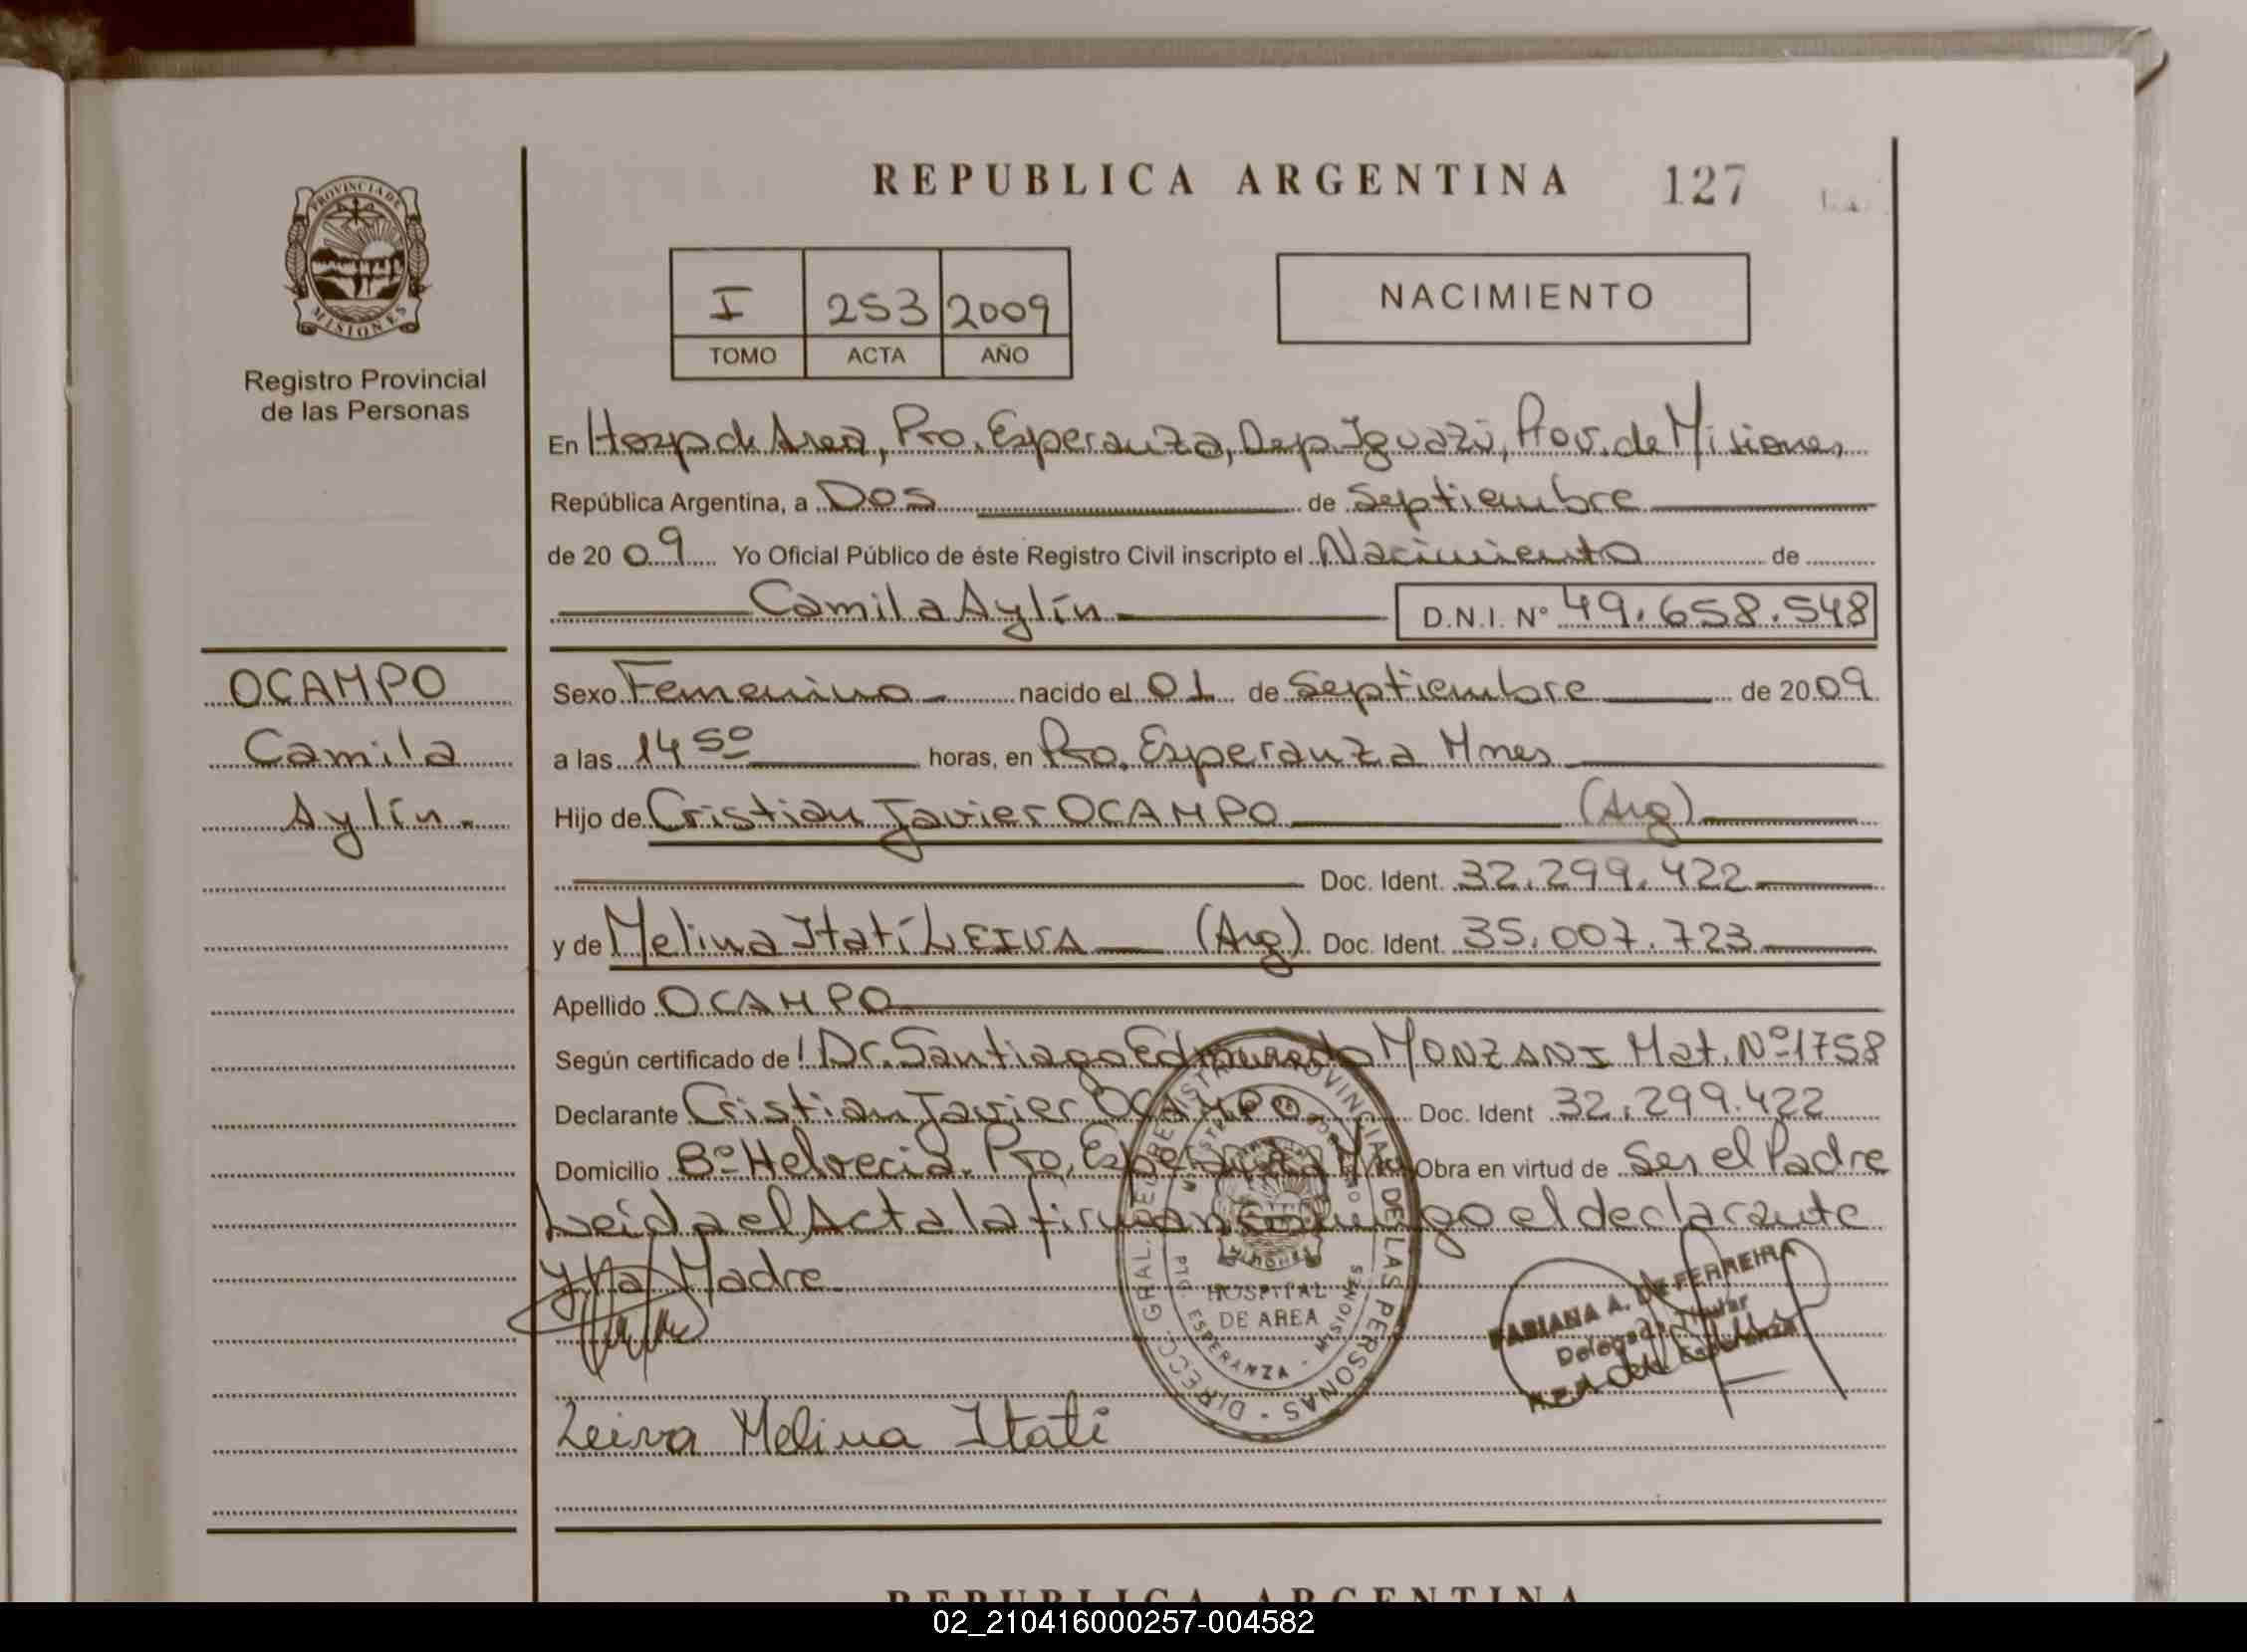 REPUBLICA ARGENTINA 127
PROVINCIA DE MISIONES
Registro Provincial
de las Personas
I 253 2009
TOMO ACTA AÑO
NACIMIENTO
En Hosp de Area, Pto. Esperanza, Dep. Iguazú, Prov. de Misiones,
República Argentina, a Dos de Septiembre
de 2009 Yo Oficial Público de éste Registro Civil inscripto el Nacimiento de
Camila Aylín D.N.I. Nº 49.658.548
OCAMPO
Camila
Aylín.
Sexo Femenino nacido el 01 de Septiembre de 2009
a las 14 50 horas, en Pto. Esperanza Mnes
Hijo de Cristian Javier OCAMPO (Arg)
Doc. Ident. 32.299.422
y de Melina Itatí LEIVA (Arg) Doc. Ident. 35.007.723
Apellido OCAMPO
Según certificado de: Dr. Santiago Edmundo MONZANI Mat. Nº 1758
Declarante Cristian Javier OCAMPO Doc. Ident 32.299.422
Domicilio Bº Helvecia. Pto. Esperanza Obra en virtud de Ser el Padre
Leida el Acta la firman conmigo el declarante
y la Madre
HOSPITAL
DE AREA
ESPERANZA - MISIONES
FABIANA A. DE FERREIRA
Delegada Titular
Leiva Melina Itati
REPUBLICA ARGENTINA
02_210416000257-004582